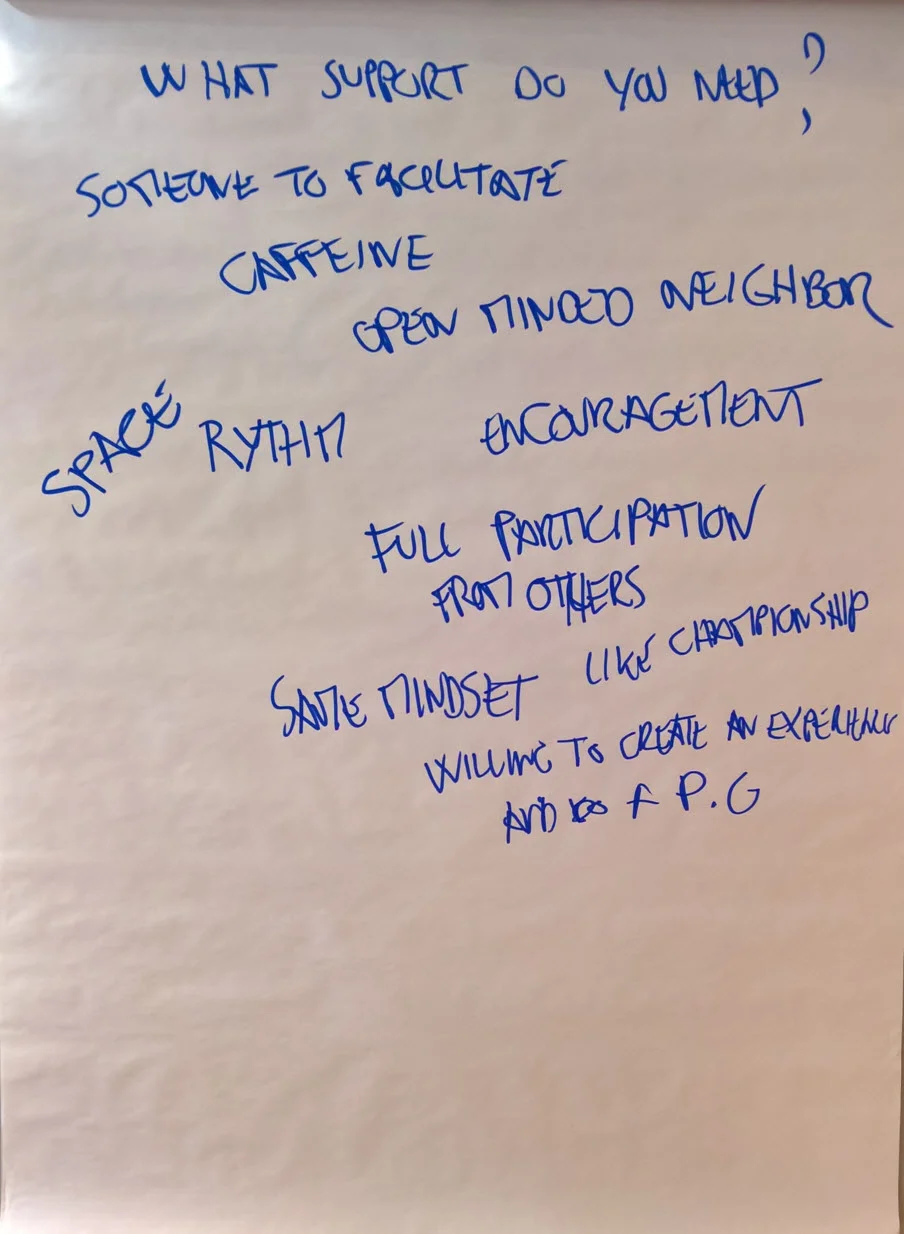 WHAT SUPPORT DO YOU NEED?
SOMEONE TO FACILITATE
CAFFEINE
OPEN MINDED NEIGHBOR
SPACE
RYTHM
ENCOURAGEMENT
FULL PARTICIPATION
FROM OTHERS
SAME MINDSET LIKE CHAMPIONSHIP
WILLING TO CREATE AN EXPERIENCE
AND DO A P.G